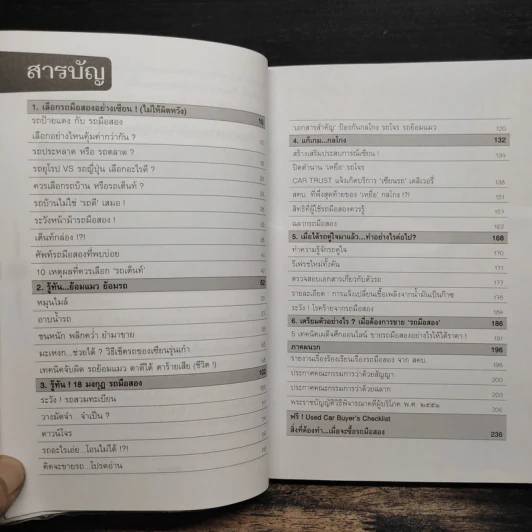 สารบัญ
1. เลือกรถมือสองอย่างเซียน ! (ไม่ให้ผิดหวัง)
รถป้ายแดง กับ รถมือสอง
เลือกอย่างไหนคุ้มค่ากว่ากัน ?
รถประหลาด หรือ รถตลาด ?
รถยุโรป VS รถญี่ปุ่น เลือกอะไรดี ?
ควรเลือกรถบ้าน หรือรถเต็นท์ ?
รถบ้านไม่ใช่ 'รถดี' เสมอ !
ระวังหน้าม้ารถมือสอง !
เต็นท์กล่อง !?!
ศัพท์รถมือสองที่พบบ่อย
10 เหตุผลที่ควรเลือก 'รถเต็นท์'
2. รู้ทัน...ย้อมแมว ย้อมรถ 62
หมุนไมล์
อาบน้ำรถ
ชนหนัก พลิกคว่ำ ยำมาขาย
มะเหงก...ช่วยได้ ? วิธีเช็ครถของเซียนรุ่นเก๋า
เทคนิคจับผิด รถย้อมแมว ตาดีได้ ตาร้ายเสีย (ชีวิต !)
3. รู้ทัน ! 18 มงกุฎ รถมือสอง 102
ระวัง ! รถสวมทะเบียน
วางมัดจำ...จำเป็น ?
ดาวน์โจร
รถอะไรเอ่ย...โอนไม่ได้ !?!
คิดจะขายรถ...โปรดอ่าน
'เอกสารสำคัญ' ป้องกันกลโกง รถโจร รถย้อมแมว ๑๒๐
4. แก้เกม...กลโกง 132
สร้างเสริมประสบการณ์เซียน ! ๑๓๔
ปิดตำนาน 'เหยื่อ' รถโจร
CAR TRUST แจ้งเกิดบริการ 'เซียนรถ' เดลิเวอรี่ ๑๓๘
สคบ. ที่พึ่งสุดท้ายของ 'เหยื่อ' กลโกง !?! ๑๕๑
สิทธิที่ผู้ใช้รถมือสองควรรู้
ฉลากรถมือสอง
5. เมื่อได้รถคู่ใจมาแล้ว...ทำอย่างไรต่อไป? 168
ทำความรู้จักรถคู่ใจ ๑๗๐
รีเฟรชใหม่ทั้งคัน ๑๗๑
ตรวจสอบเอกสารเกี่ยวกับตัวรถ
รายละเอียด : การแจ้งเปลี่ยนเชื้อเพลิงจากน้ำมันเป็นก๊าซ
ระวัง ! โรคร้ายจากรถมือสอง ๑๘๔
6. เตรียมตัวอย่างไร ? เมื่อต้องการขาย 'รถมือสอง' 186
5 เทคนิคเผด็จศึก ขายรถมือสองอย่างไรให้ได้ราคา !
ภาคผนวก 196
รายงานเรื่องร้องเรียนเรื่องรถมือสอง จาก สคบ.
ประกาศคณะกรรมการว่าด้วยสัญญา
ประกาศคณะกรรมการว่าด้วยฉลาก ๒๐๓
พระราชบัญญัติวิธีพิจารณาคดีผู้บริโภค พ.ศ. ๒๕๕๑ ๒๐๖
ฟรี ! Used Car Buyer's Checklist
สิ่งที่ต้องทำ...เมื่อจะซื้อรถมือสอง 236